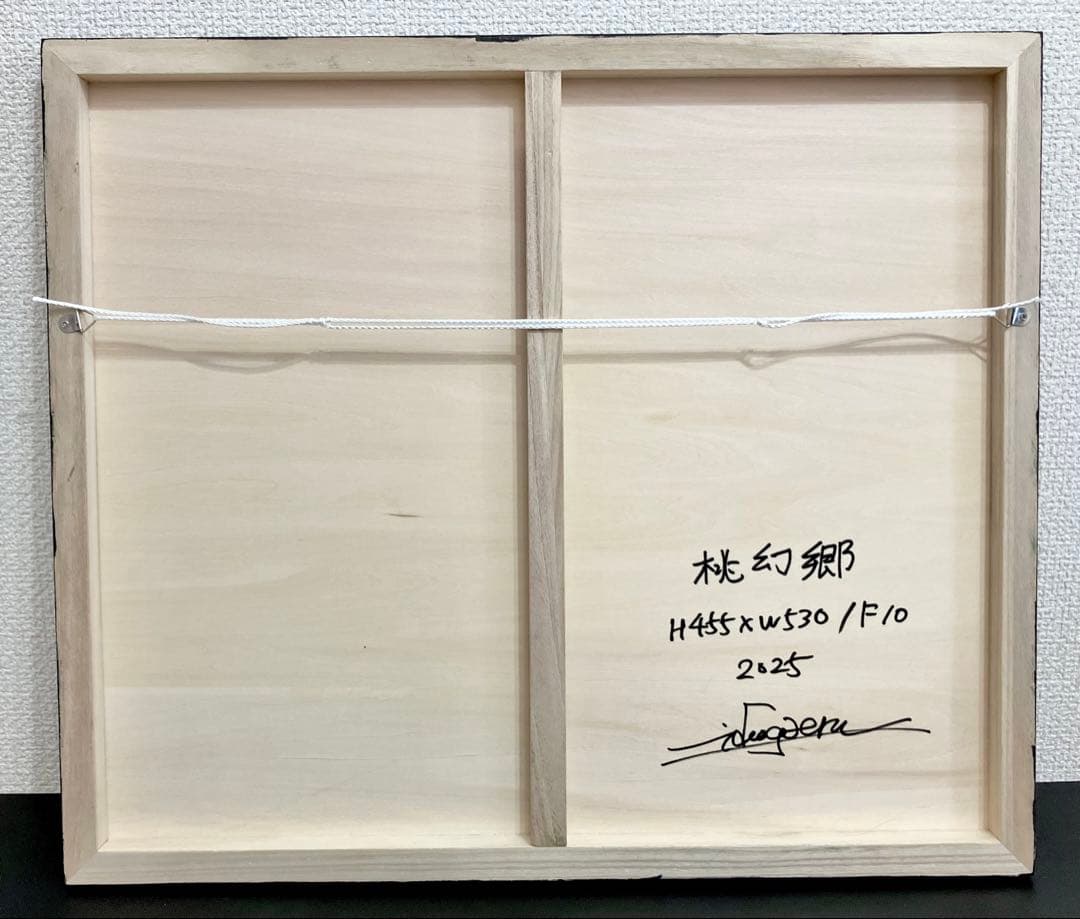 桃幻郷
H455×W530/F10
2025